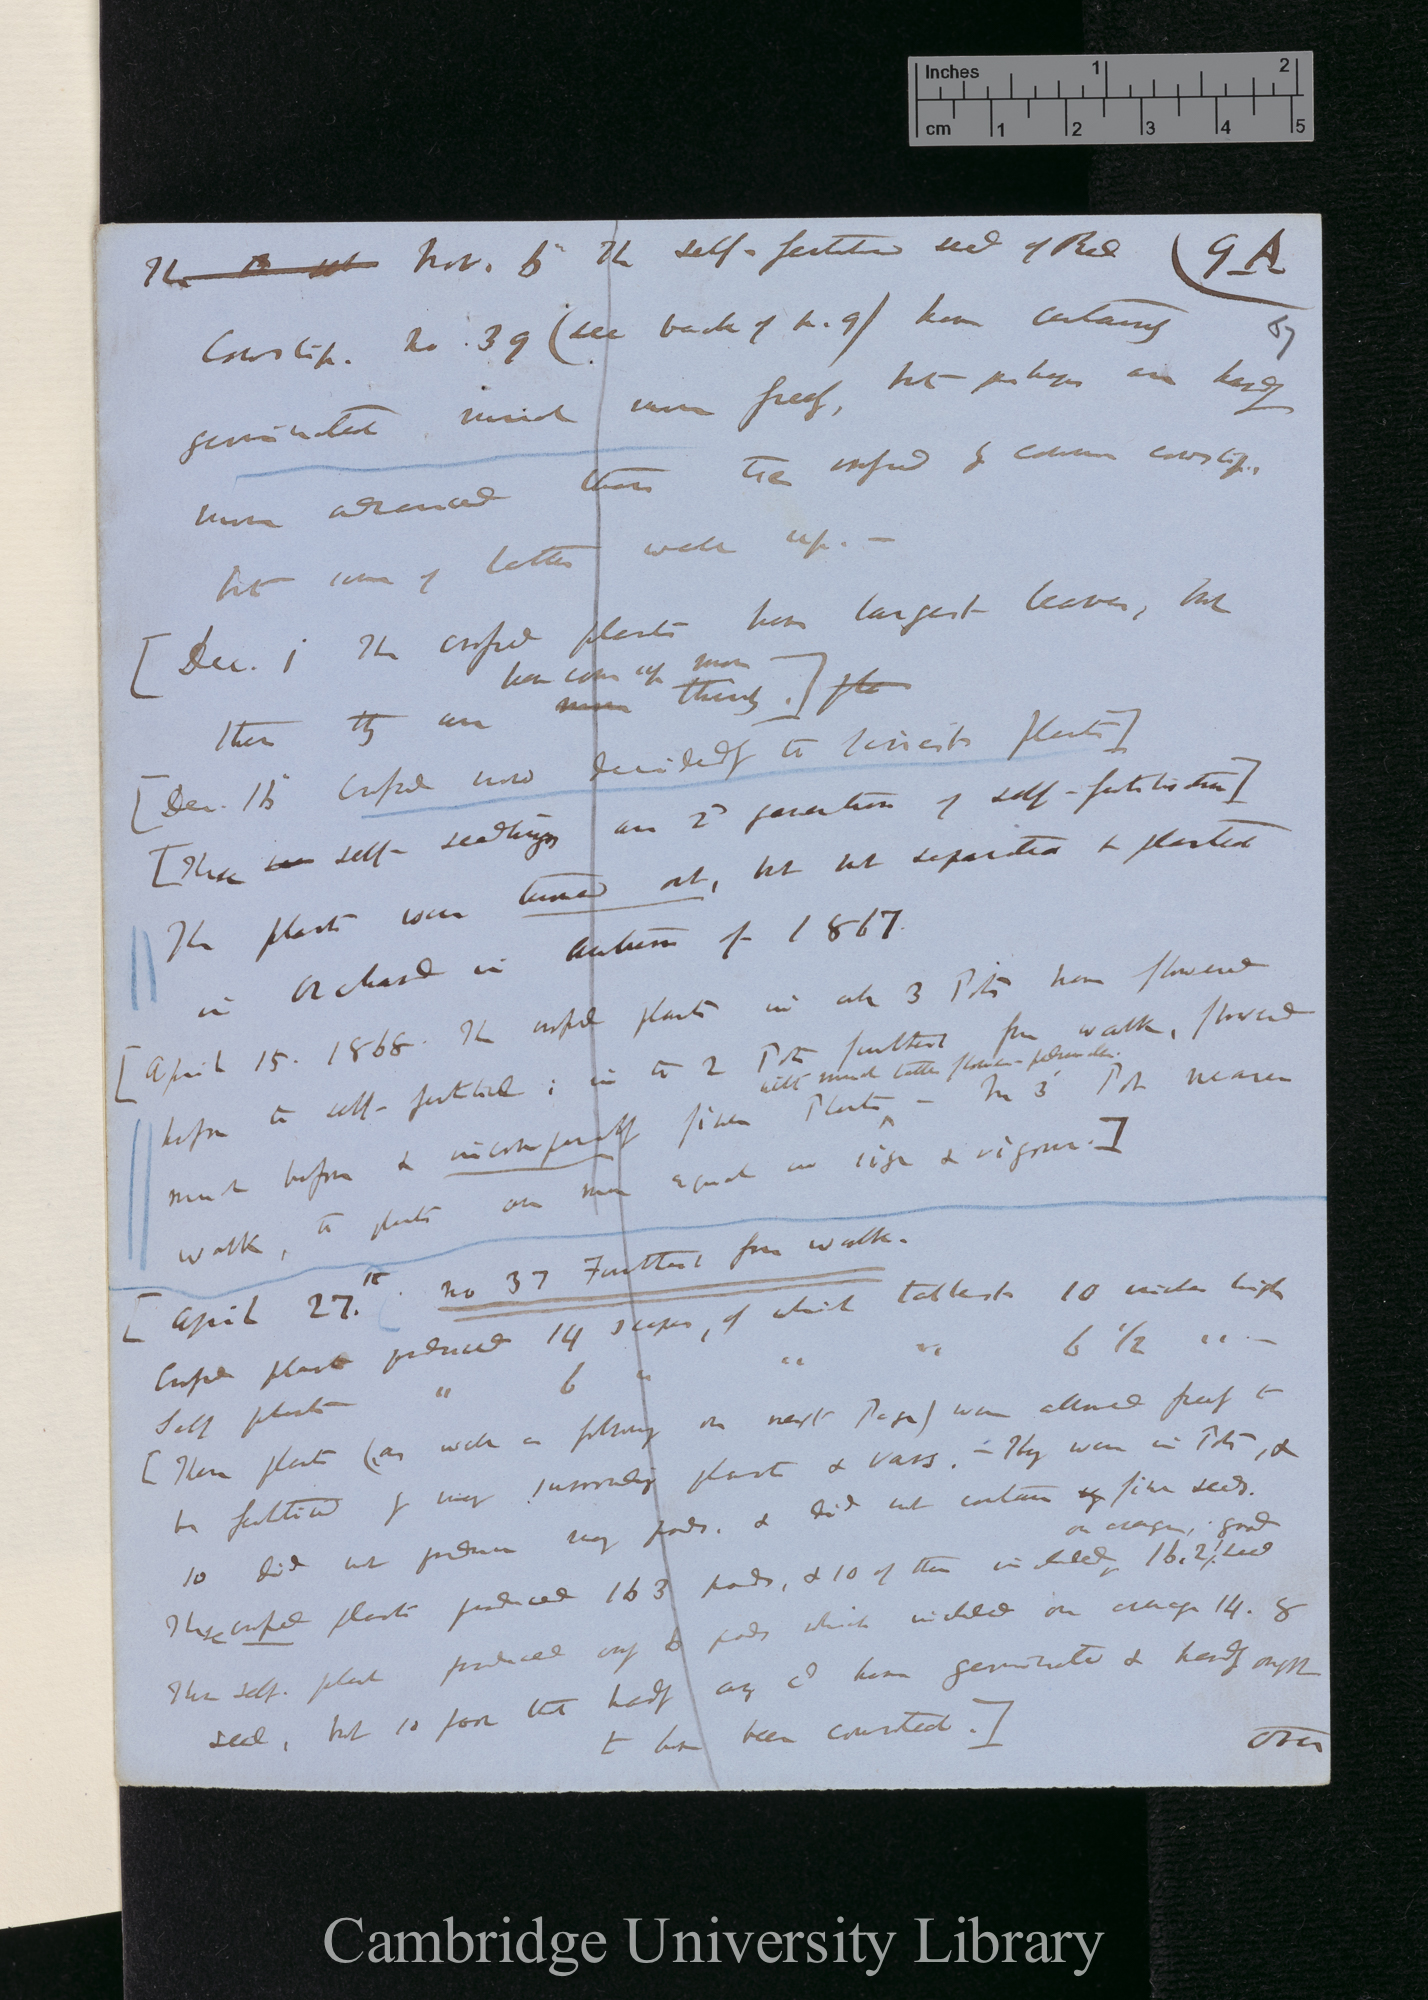 Inches 1 2
cm 1 2 3 4 5
The Nov. 6th The self-fertilised seed of Red (9A
Cowslip. No. 39 (see back of p. 9) have certainly 67
germinated much more freely, but perhaps are hardly
more advanced than the crossed by common cowslip,
but some of latter well up. —
[Dec. 1 The crossed plants have largest leaves, but
have come up more
then they are more thinly.]
[Dec. 15 Crossed now decidedly the finest plants]
[These self-seedlings are 2d generation of self-fertilisation]
The plants were turned out, but not separated & planted
in orchard in autumn of 1867.
[April 15. 1868. The crossed plants in all 3 Pots have flowered
before the self-fertilised; in the 2 Pots furthest from walk, flowered
with much taller flower-peduncles.
much before & incomparably finer Plants, — In 3d Pot nearer
walk, the plants are more equal in size & vigour.]
[April 27th. No 37 Furthest from walk.
Crossed plants produced 14 scapes, of which tallest 10 inches high
Self plants " 6 " " " 6 1/2 " —
[These plants (as well as following on next Page) were allowed freely to
be fertilised by surrounding plants & vars. — They were in Pots, &
so did not produce many pods. & did not contain fine seeds.
on average, good
These crossed plants produced 163 pods, & 10 of them included, 16.2 seed
These self. plants produced only 6 pods which included on average 14. 8
seed, but so poor that hardly any cd have germinated & hardly ought
to have been counted.]
over
Cambridge University Library